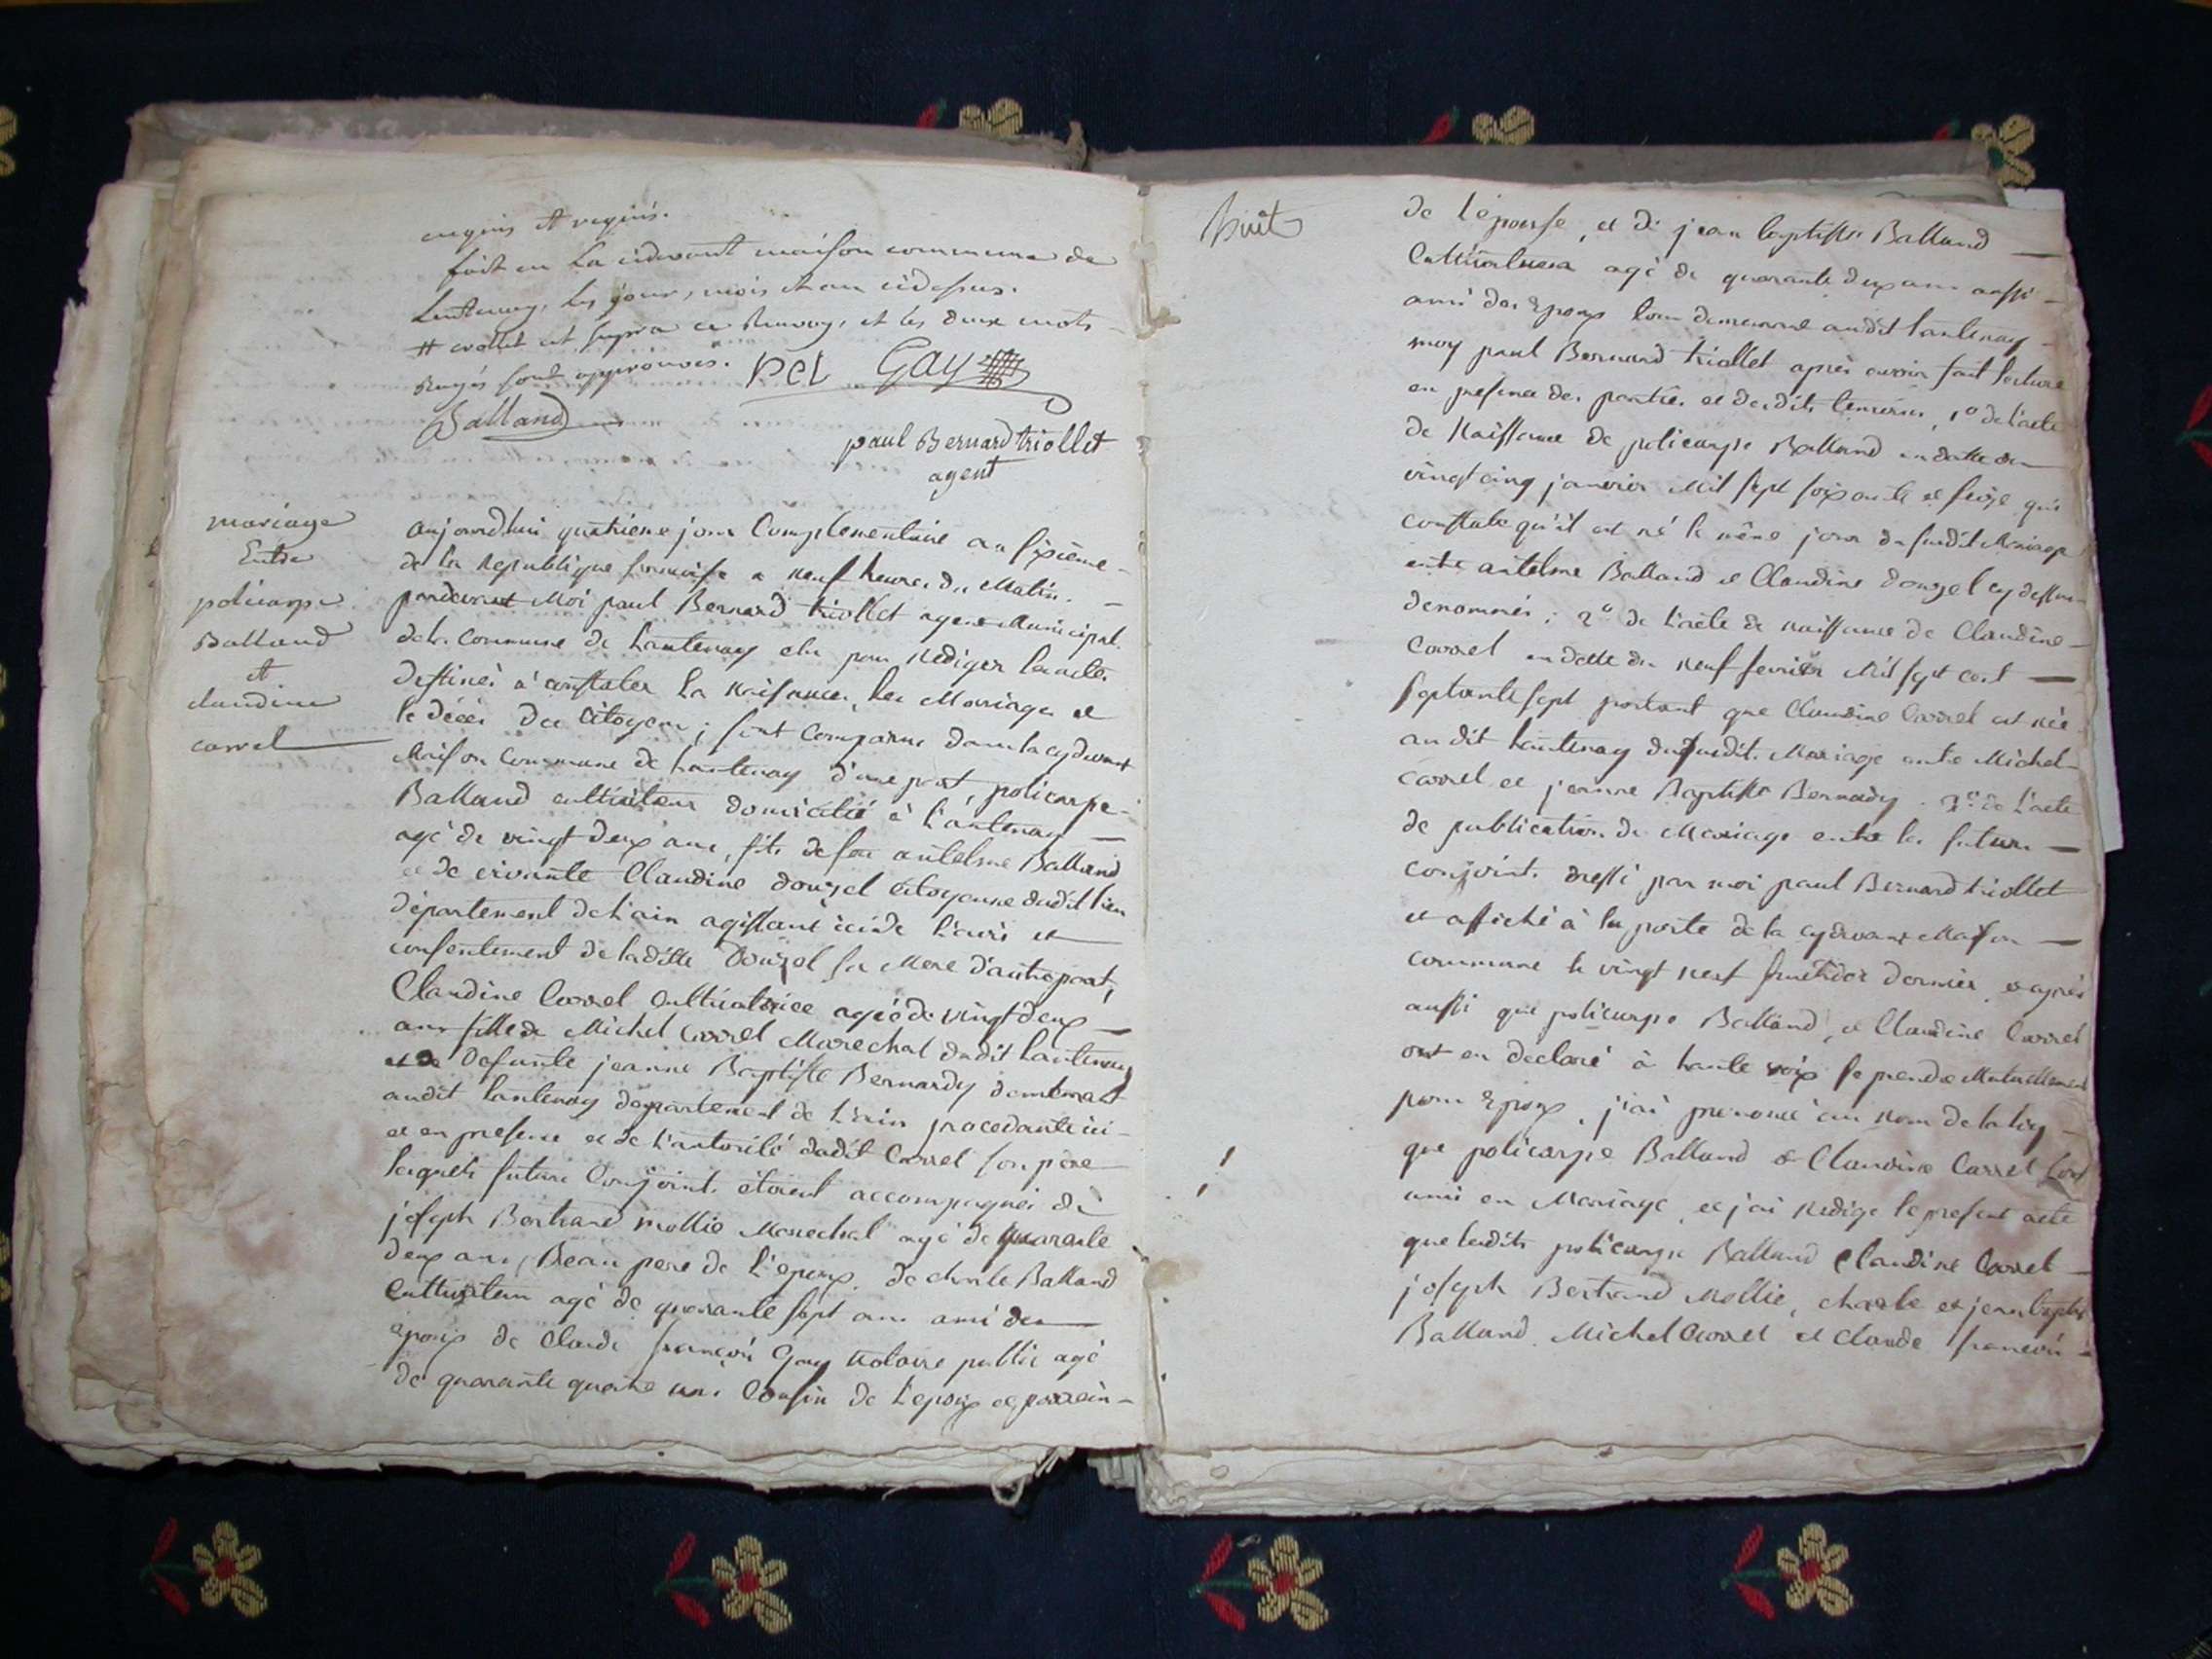 requis et requis.
fait en La cidevant maison commune de
Lantenay, les jour, mois et an cidessus.
# et supra ce Renvoy, et les deux mots
Rayés sont approuvés.
Gay
Balland
paul Bernard triollet
agent
mariage
Entre
policarpe
Balland
et
claudine
carrel
aujourdhui quatrieme jour Complementaire an sixième
de la Republique francaise a neuf heures du Matin.
pardevant Moi paul Bernard triollet agent Municipal
de la Commune de Lantenay elu pour Rediger les actes
destinés à constater La Naissance, les Mariages et
le décès des Citoyens; sont Comparus dans la cydevant
Maison Commune de Lantenay d'une part, policarpe
Balland cultivateur domicilié à Lantenay
agé de vingt deux ans, fils de feu antelme Balland
et de vivante Claudine douzel citoyenne dudit lieu
département de L'ain agissant ici de L'avis et
consentement de ladite Douzel sa Mere d'autre part,
Claudine Carrel Cultivatrice agée de vingt deux
ans fille de Michel Carrel Marechal dudit Lantenay
et de defunte jeanne Baptiste Bernardy demeurant
audit Lantenay département de L'ain procedante ici
et en presence et de L'autorité dudit Carrel son père
lesquels futurs Conjoints étoient accompagnés de
joseph Bertrand mollie Marechal agé de quarante
deux ans, Beau pere de L'epoux, de charle Balland
Cultivateur agé de quarante sept ans ami des
Epoux de Claude françois Gay Notaire public agé
de quarante quatre ans Cousin de L'epoux et parrein
huit
de L'épouse, et de jean baptiste Balland
Cultivateur agé de quarante deux ans aussi
ami des Epoux tous demeurant audit Lantenay
moy paul Bernard triollet après avoir fait lecture
en presence des parties et desdits temoins, 1º de l'acte
de Naissance de policarpe Balland en datte du
vingt cinq janvier Mil sept soixante et seize qui
constate qu'il est né le même jour du susdit Mariage
entre antelme Balland et Claudine douzel cy dessus
denommés; 2º de L'acte de naissance de Claudine
Carrel en datte du neuf fevrier Mil sept cent
septante sept portant que Claudine Carrel est née
au dit Lantenay du susdit Mariage entre Michel
Carrel et jeanne Baptiste Bernardy. 3º de L'acte
de publication de Mariage entre les futurs
conjoints dressé par moi paul Bernard triollet
et affiché à la porte de la cydevant Maison
commune le vingt neuf fructidor dernier, et après
aussi que policarpe Balland, et Claudine Carrel
ont eu declaré à haute voix se prendre Mutuellement
pour Epoux, j'ai prononcé au nom de la loy
que policarpe Balland et Claudine Carrel sont
unis en Mariage, et j'ai Redigé le present acte
que lesdits policarpe Balland Claudine Carrel
joseph Bertrand Mollie, charle et jean baptiste
Balland, Michel Carrel et Claude françois